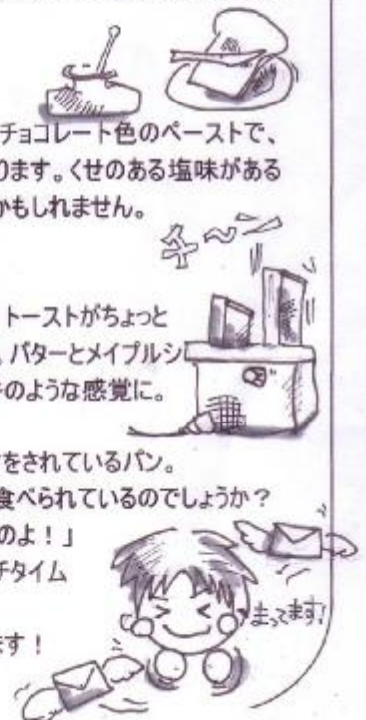 チョコレート色のペーストで、
ります。くせのある塩味がある
かもしれません。
チ〜ン
トーストがちょっと
バターとメイプルシ
のような感覚に。
をされているパン。
食べられているのでしょうか？
のよ！」
チタイム
まってます!
ます！